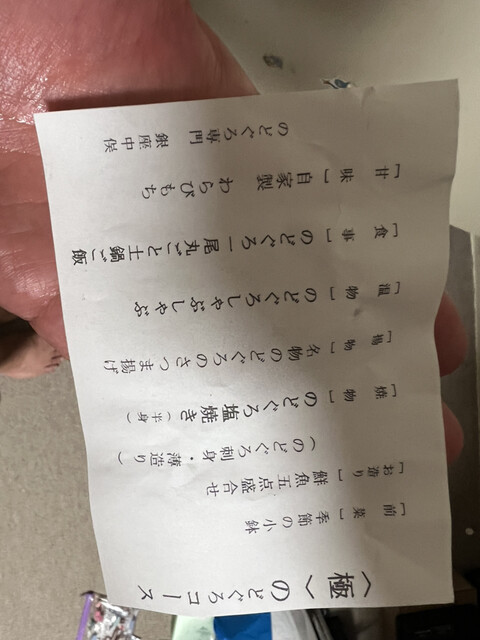 〈極〉のどぐろコース
［前菜］季節の小鉢
［お造り］鮮魚五点盛合せ
（のどぐろ刺身・薄造り）
［焼物］のどぐろ塩焼き（半身）
［揚物］名物のどぐろのさつま揚げ
［温物］のどぐろしゃぶしゃぶ
［食事］のどぐろ一尾丸ごと土鍋ご飯
［甘味］自家製 わらびもち
のどぐろ専門 銀座中俣